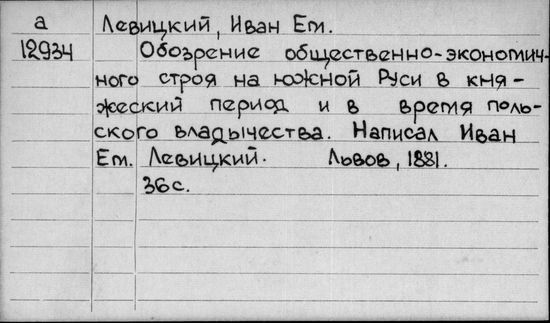 а Левицкий, Иван Ем.
12934 Обозрение общественно-экономич-
ного строя на южной Руси в кня-
жеский период и в время поль-
ского владычества. Написал Иван
Ем. Левицкий. Львов, 1881.
36 с.